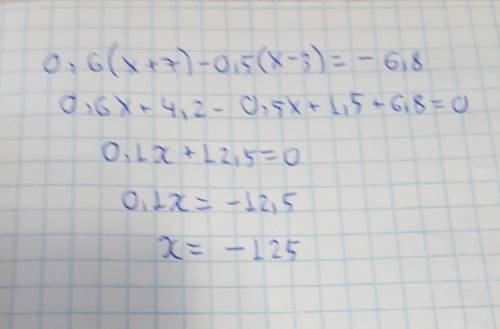 0,6(x+7)-0,5(x-3)=-6,8
0,6x+4,2-0,5x+1,5+6,8=0
0,1x+12,5=0
0,1x=-12,5
x=-125